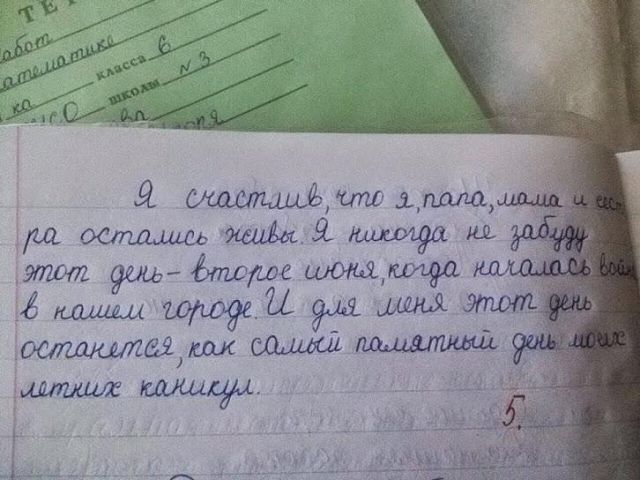 ТЕ
работ
математике
ка класса 6
школы №3
Я счастлив, что я, папа, мама и сест
ра остались живы. Я никогда не забуду
этот день - второе июня, когда началась войн
в нашем городе. И для меня этот день
останется, как самый памятный день моих
летних каникул.
5.